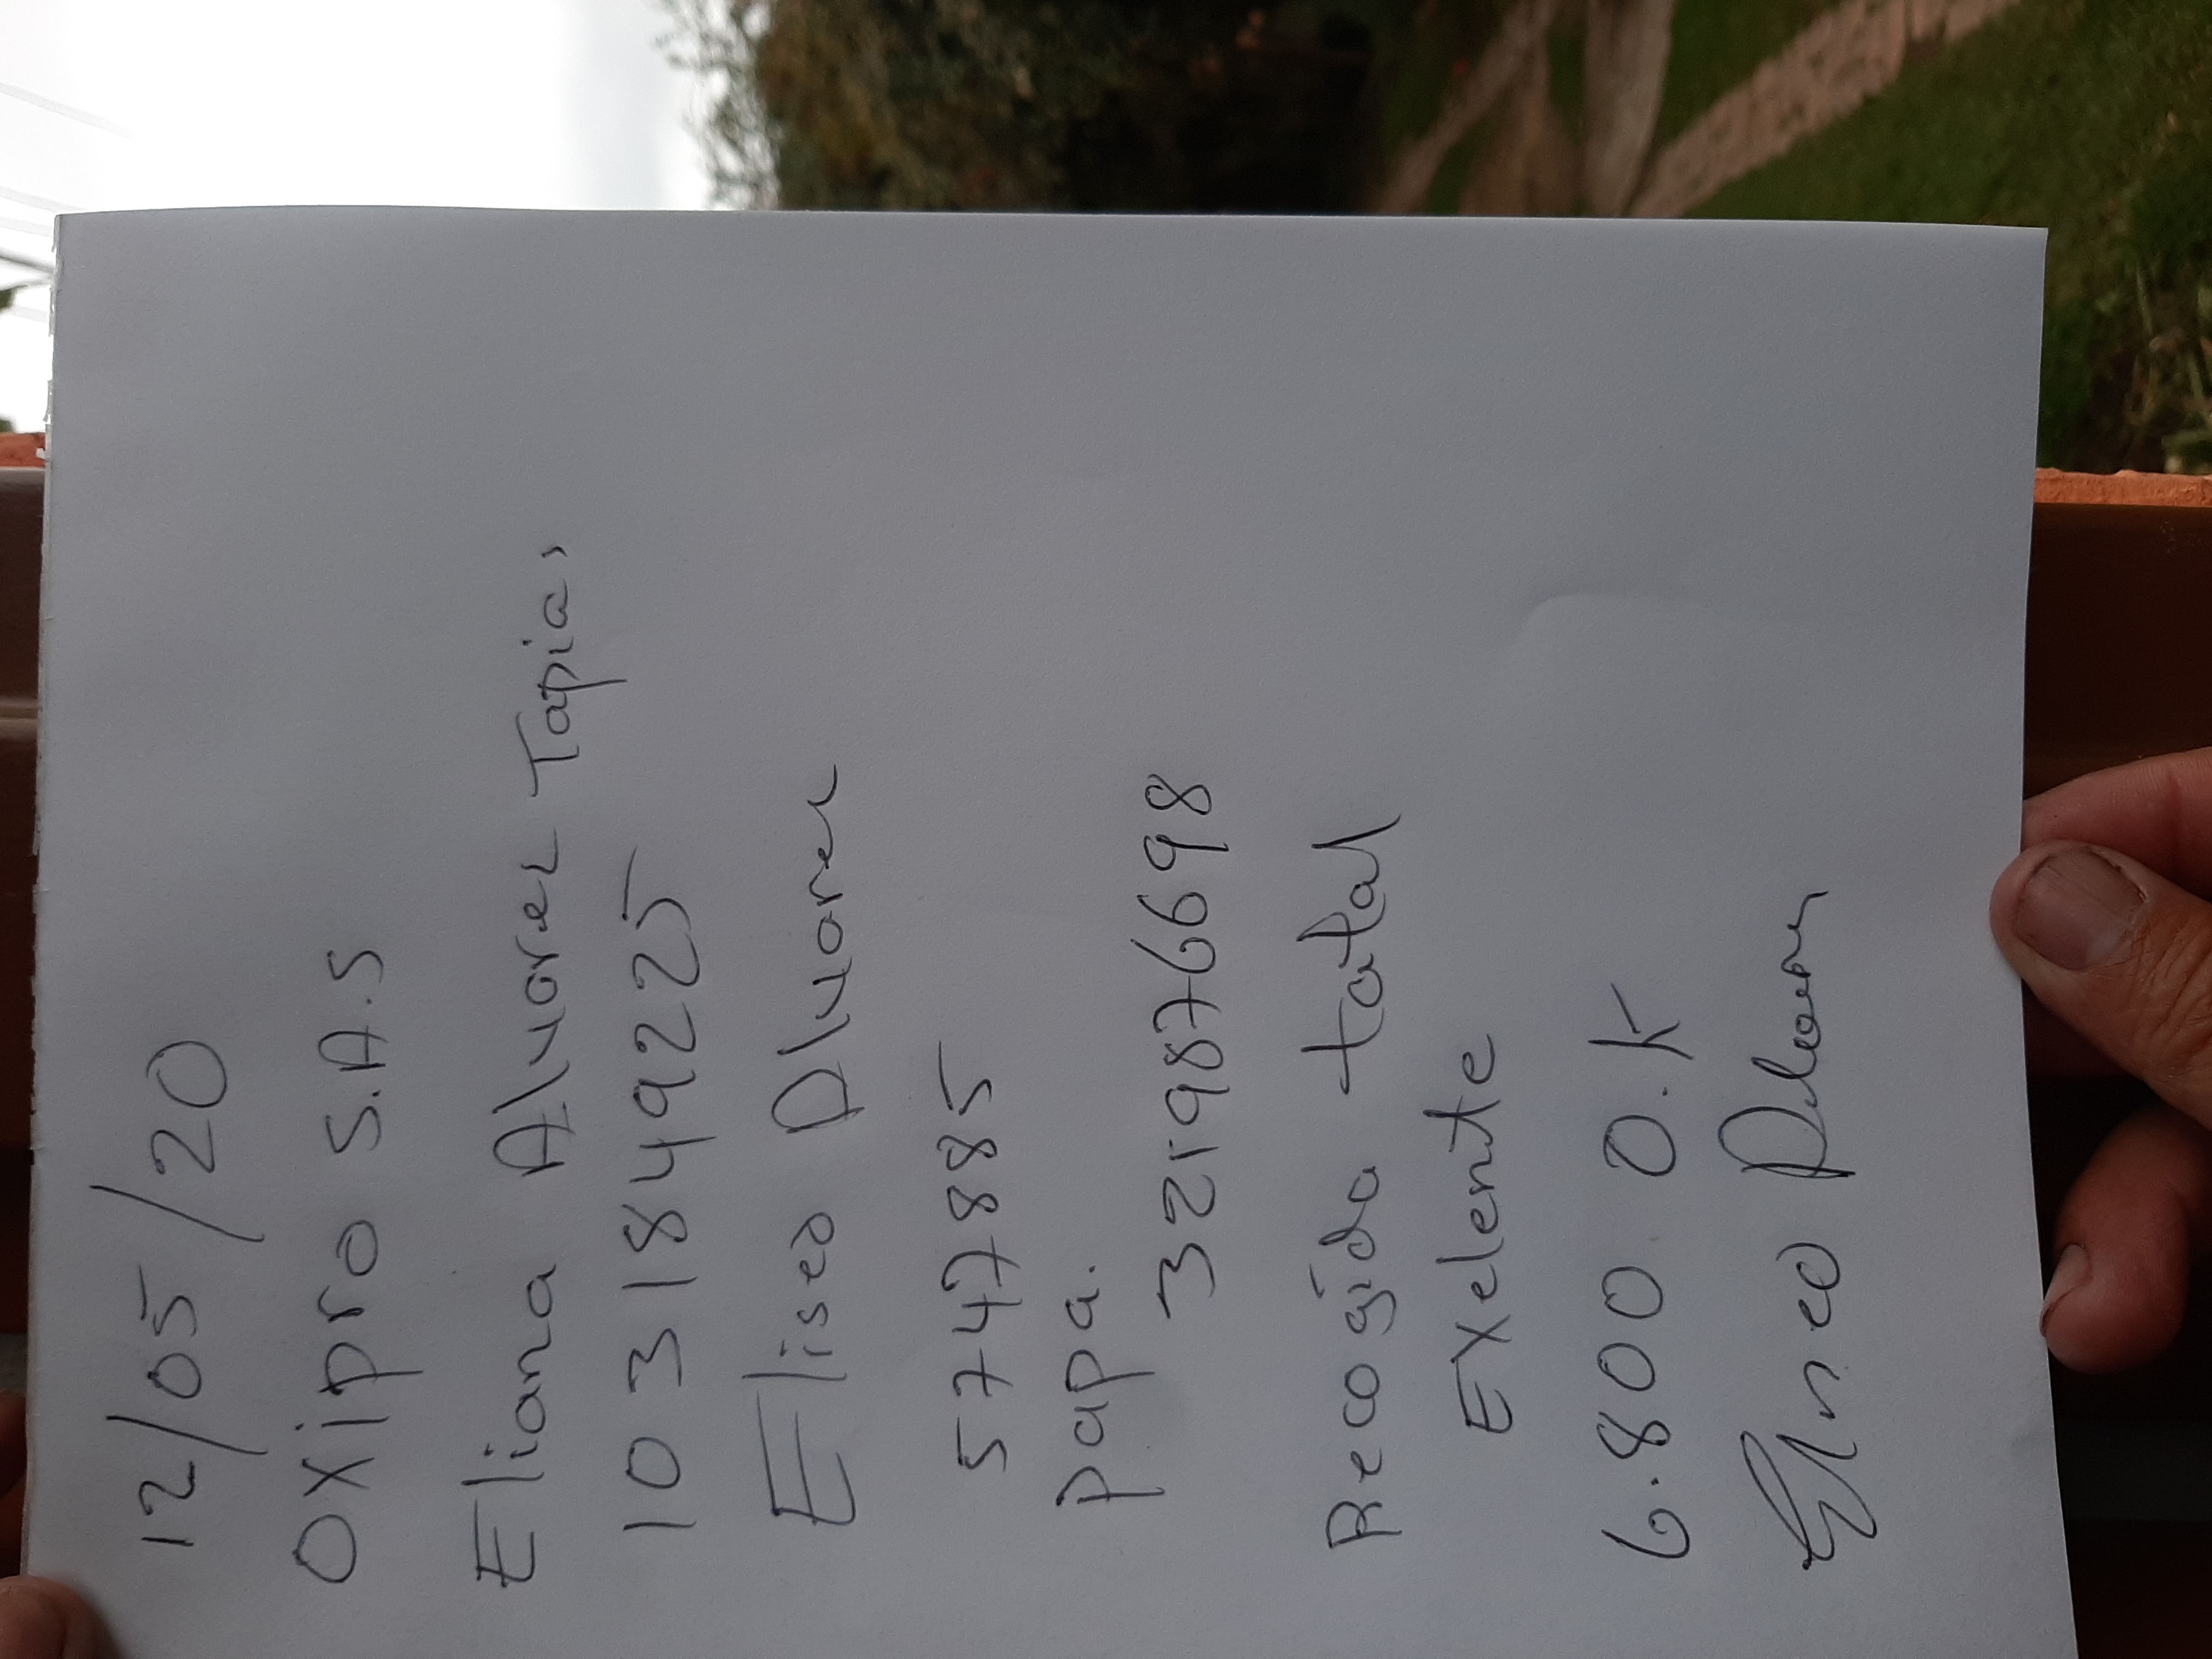 12/05/20
Oxipro S.A.S
Eliana Alvarez Tapias
1031849225
Eliseo Alvarez
5747885
papa.
3219876698
Recogida total
Exelente
6.800 O.K
Eliseo